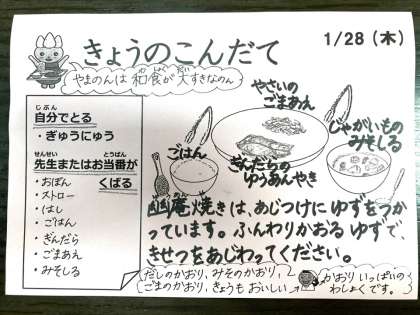 きょうのこんだて
1/28（木）
やまのんは和食が大すきなのん
わしょく
だい
じぶん
自分でとる
・ぎゅうにゅう
せんせい
とうばん
先生またはお当番が
くばる
・おぼん
・ストロー
・はし
・ごはん
・ぎんだら
・ごまあえ
・みそしる
やさいの
ごまあえ
じゃがいもの
みそしる
ごはん
ぎんだらの
ゆうあんやき
ゆうあん
幽庵焼きは、あじつけにゆずをつか
っています。ふんわりかおるゆずで、
きせつをあじわってください。
だしのかおり、みそのかおり、
ごまのかおり、きょうもおいしい
かおりいっぱいの
わしょくです。